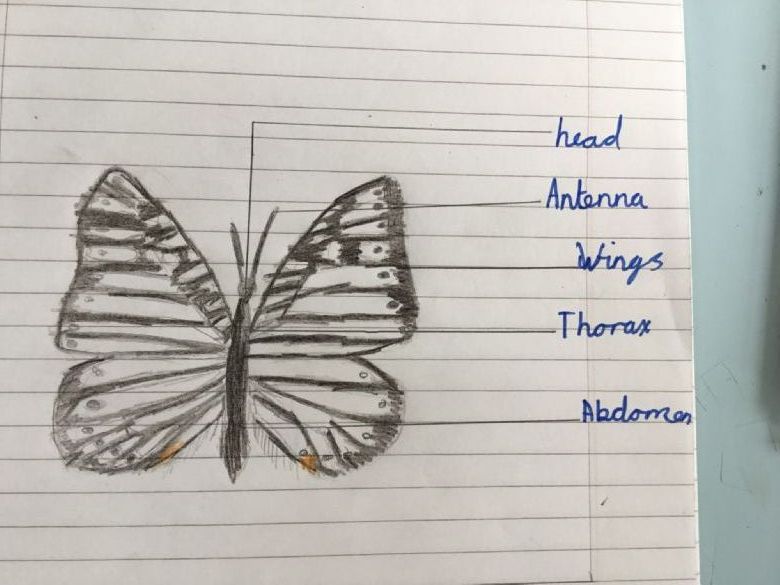 head
Antenna
Wings
Thorax
Abdomen